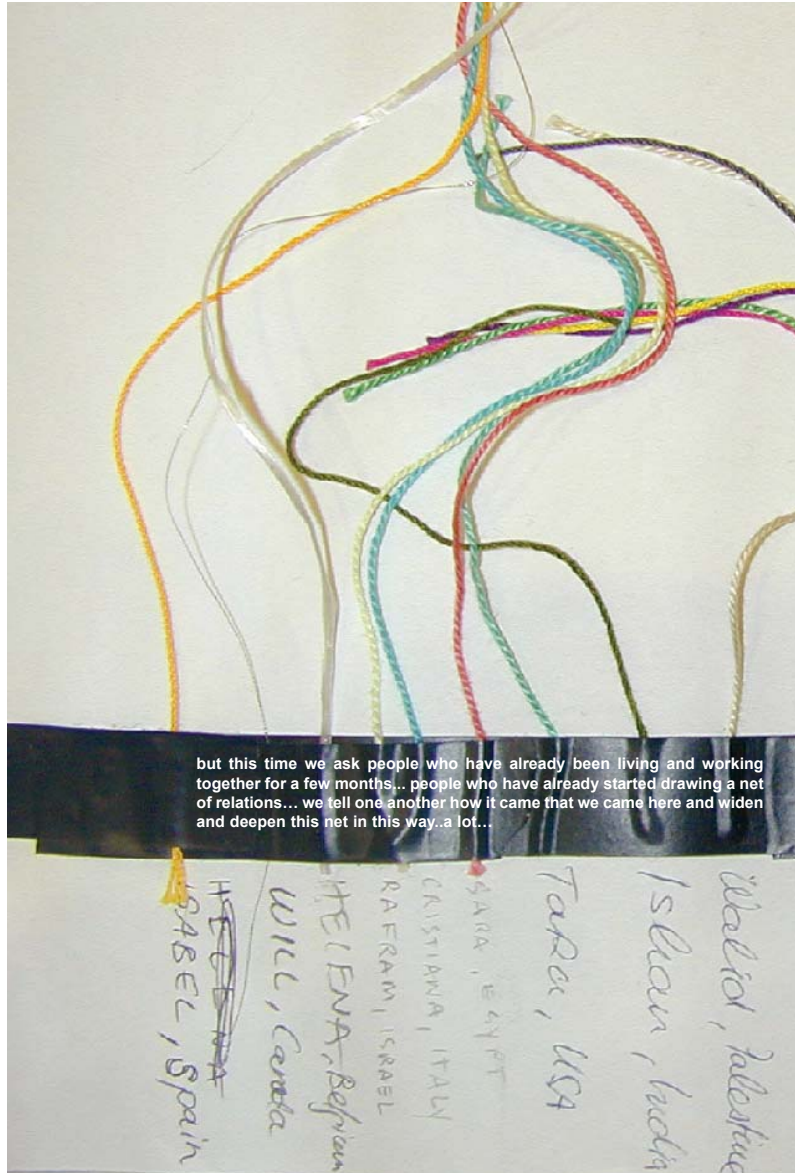 but this time we ask people who have already been living and working
together for a few months... people who have already started drawing a net
of relations... we tell one another how it came that we came here and widen
and deepen this net in this way..a lot...
ISABEL, Spain
HELENA
WILL, Canada
HELENA, Belgium
RAFRAM, ISRAEL
CRISTIANA, ITALY
SARA, EGYPT
Tara, USA
Ishan, India
Walid, Palestine